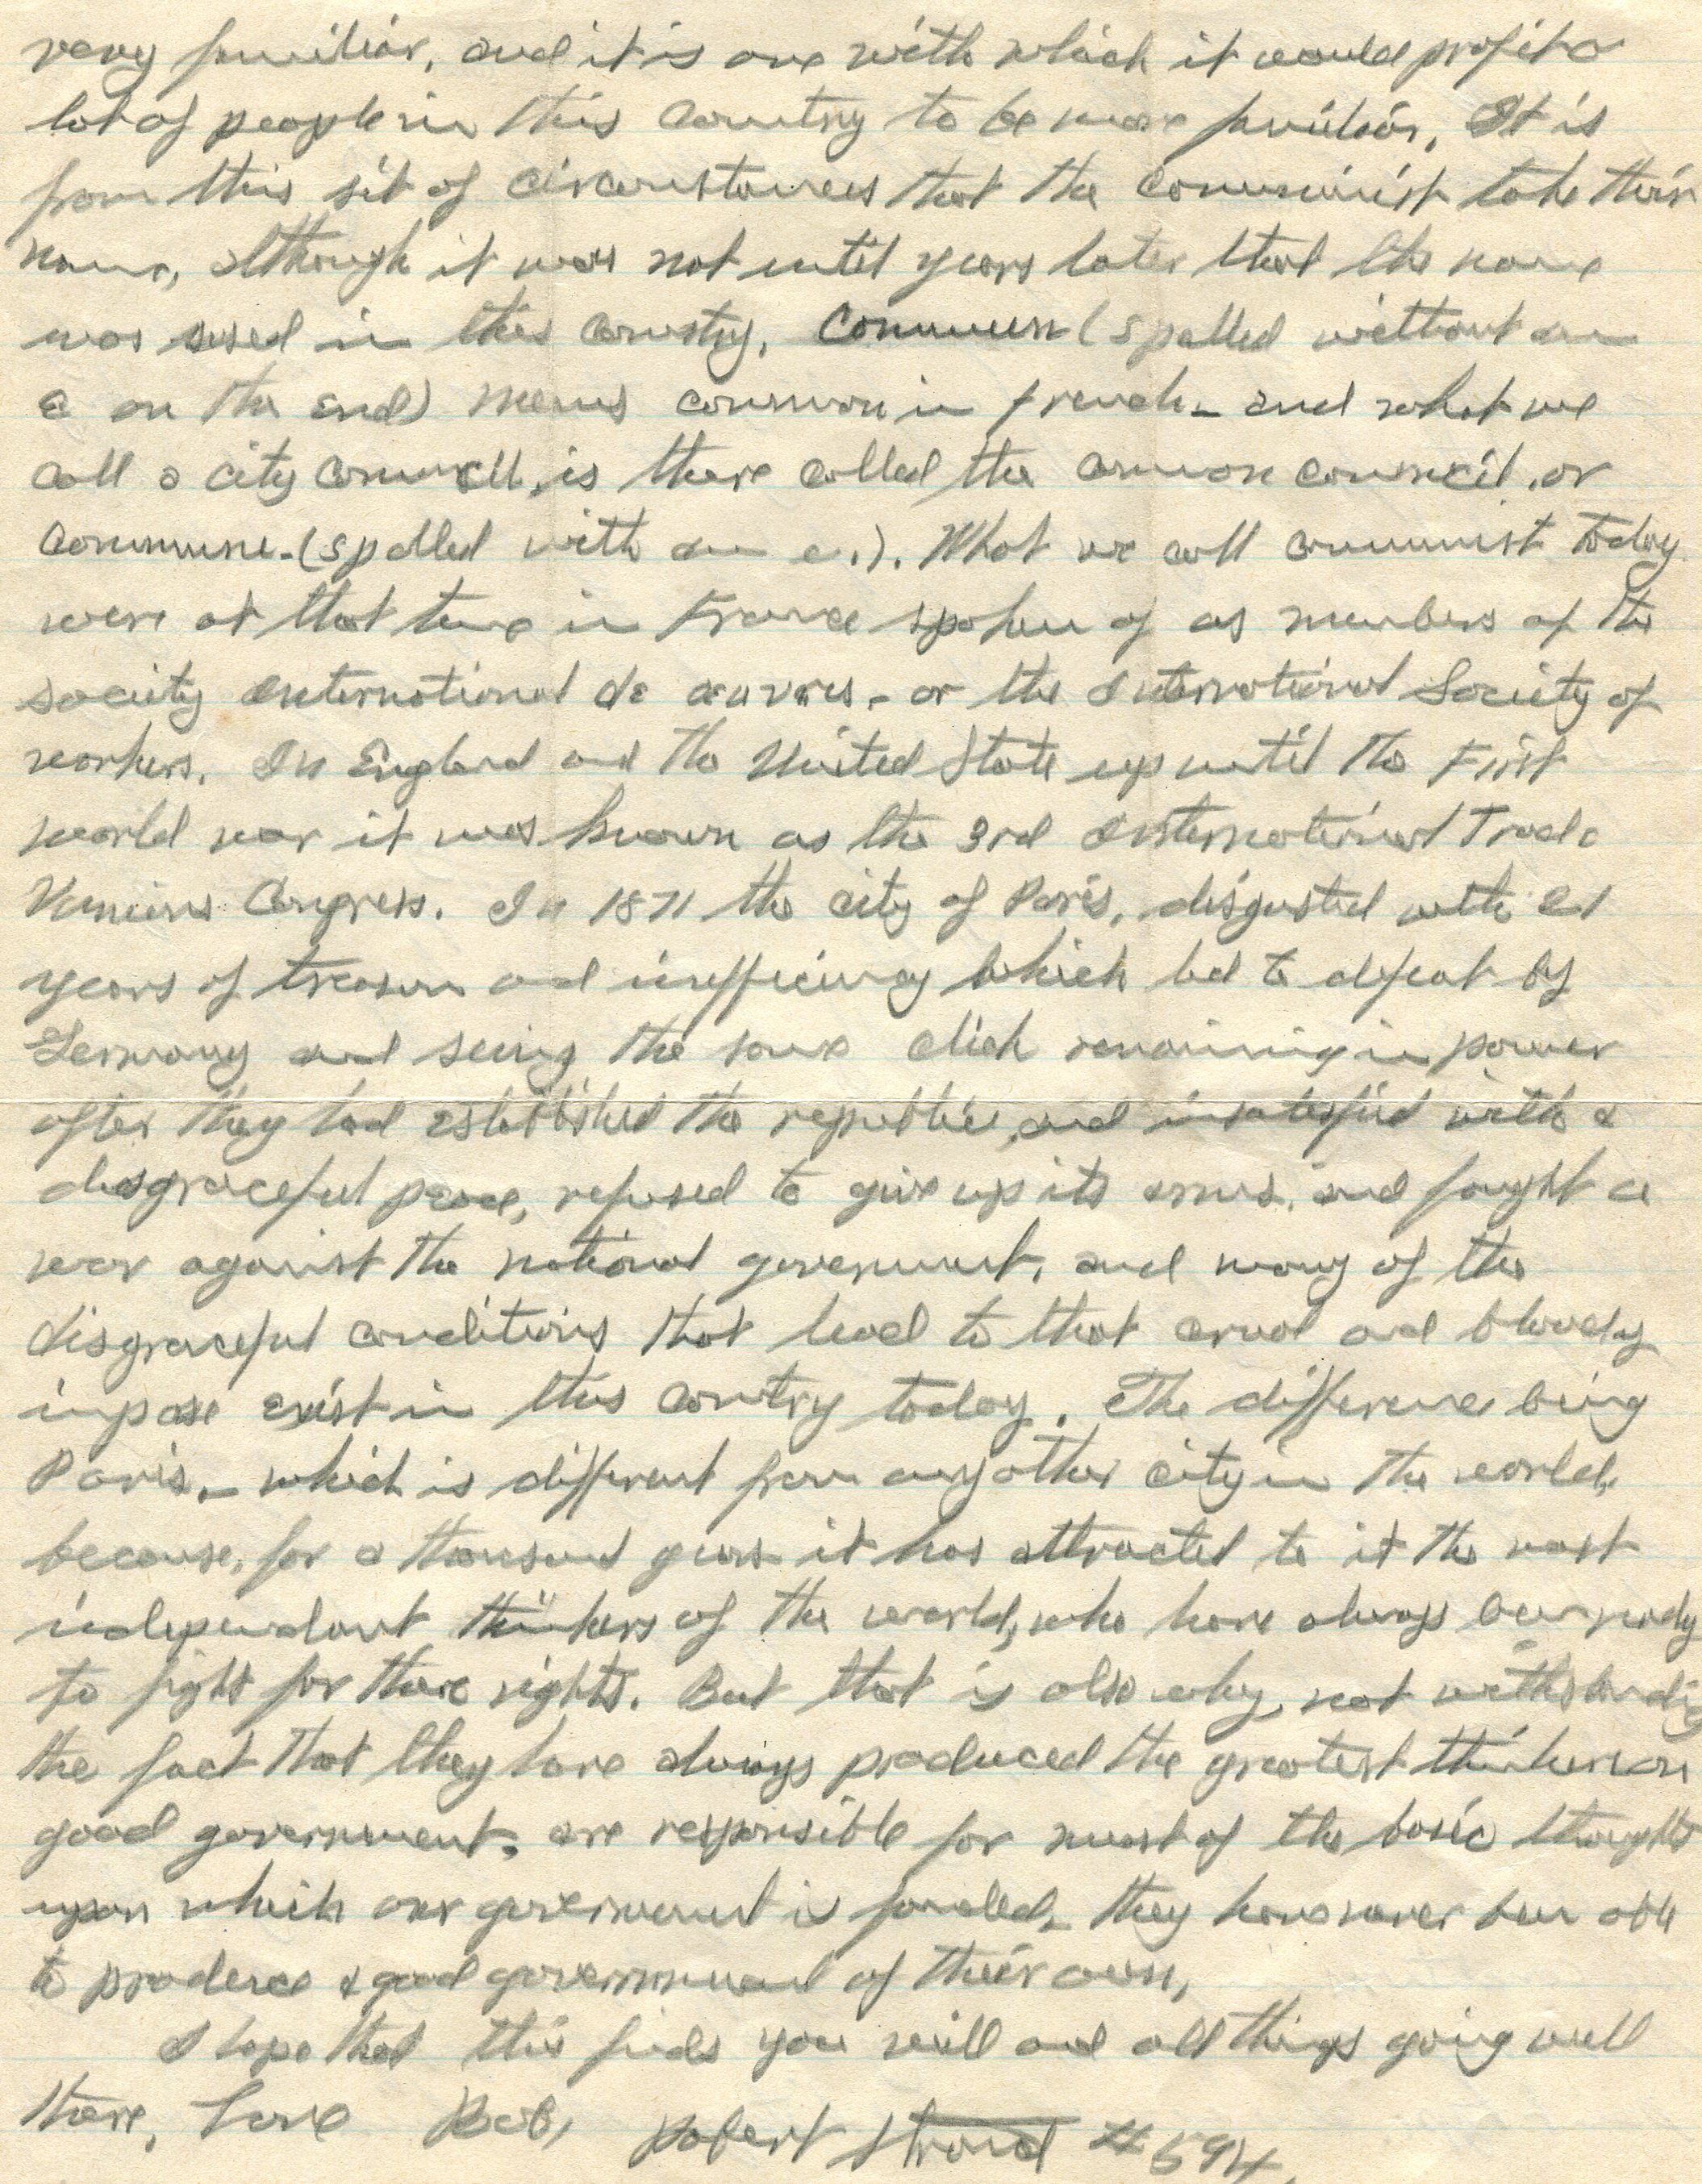 very familiar, and it is one with which it would profit a
lot of people in this country to be more familiar. It is
from this sit of circumstances that the communist take their
name, although it was not until years later that the name
was used in this country. Commun (spelled without an
e on the end) means common in french - and what we
call a city councill, is there called the common council, or
Commune - (spelled with an e.). What we call communist today
were at that time in France spoken of as members of the
society international de œuvres - or the International Society of
workers. In England and the United State up until the First
world war it was known as the 3rd International Trade
Unions Congress. In 1871 the city of Paris, disgusted with 21
years of treason and inefficiency which led to defeat by
Germany and seeing the same click remaining in power
after they had established the republic, and insatesfied with a
disgraceful peace, refused to give up its arms, and fought a
war against the national government, and many of the
disgraceful conditions that lead to that cruel and bloody
inpase exist in this contry today. The difference being
Paris, - which is different from any other city in the world,
because, for a thousand years it has attracted to it the most
independant thinkers of the world, who have always been ready
to fight for there rights. But that is also why, not withstanding
the fact that they have always produced the greatest thinkers on
good government, are responsible for most of the basic thoughts
upon which our government is founded, - they have never been able
to produce a good government of their own,
I hope that this finds you well and all things going well
there, Love Bob,
Robert Stroud #594,